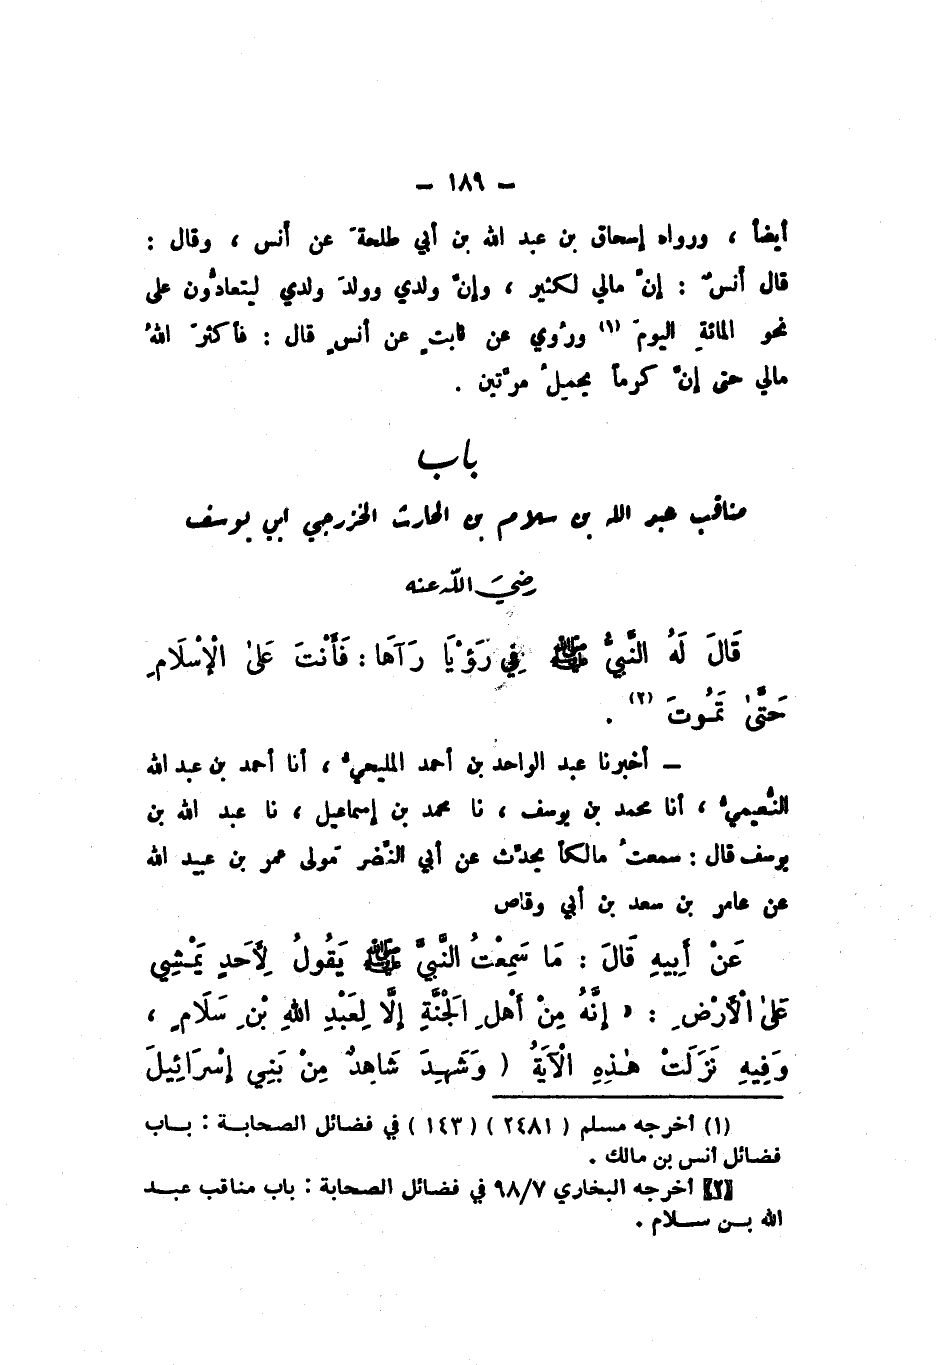 – ١٨٩ –
أيضاً ، ورواه إسحاق بن عبد الله بن أبي طلحةَ عن أنس ، وقال :
قال أنسٌ : إنَّ مالي لكثير ، وإنَّ ولدي وولدَ ولدي ليتعادُّون على
نحو المائةِ اليومَ (١) ورُوي عن ثابتٍ عن أنسٍ قال : فأكثرَ اللهُ
مالي حتى إنَّ كرماً يحملُ مرَّتين .
باب
مناقب عبد الله بن سلام بن الحارث الخزرجي ابي يوسف
رضي الله عنه
قَالَ لَهُ النَّبِيُّ ﷺ فِي رُؤْيَا رَآهَا : فَأَنْتَ عَلىٰ الْإِسْلَامِ
حَتَّىٰ تَمُوتَ (٢) .
– أخبرنا عبد الواحد بن أحمد المليحيُّ ، أنا أحمد بن عبد الله
النُّعيميُّ ، أنا محمد بن يوسف ، نا محمد بن إسماعيل ، نا عبد الله بن
يوسف قال : سمعتُ مالكاً يحدِّث عن أبي النَّضر مَولى عمر بن عبيد الله
عن عامر بن سعد بن أبي وقاص
عَنْ أَبِيهِ قَالَ : مَا سَمِعْتُ النَّبِيَّ ﷺ يَقُولُ لِأَحَدٍ يَمْشِي
عَلىٰ الْأَرْضِ : « إِنَّهُ مِنْ أَهْلِ الْجَنَّةِ إِلَّا لِعَبْدِ اللهِ بْنِ سَلَامٍ ،
وَفِيهِ نَزَلَتْ هٰذِهِ الْآيَةُ ( وَشَهِدَ شَاهِدٌ مِنْ بَنِي إِسْرَائِيلَ
(١) أخرجه مسلم ( ٢٤٨١ ) ( ١٤٣ ) في فضائل الصحابة : باب
فضائل أنس بن مالك .
[٢] أخرجه البخاري ٩٨/٧ في فضائل الصحابة : باب مناقب عبد
الله بن سلام .